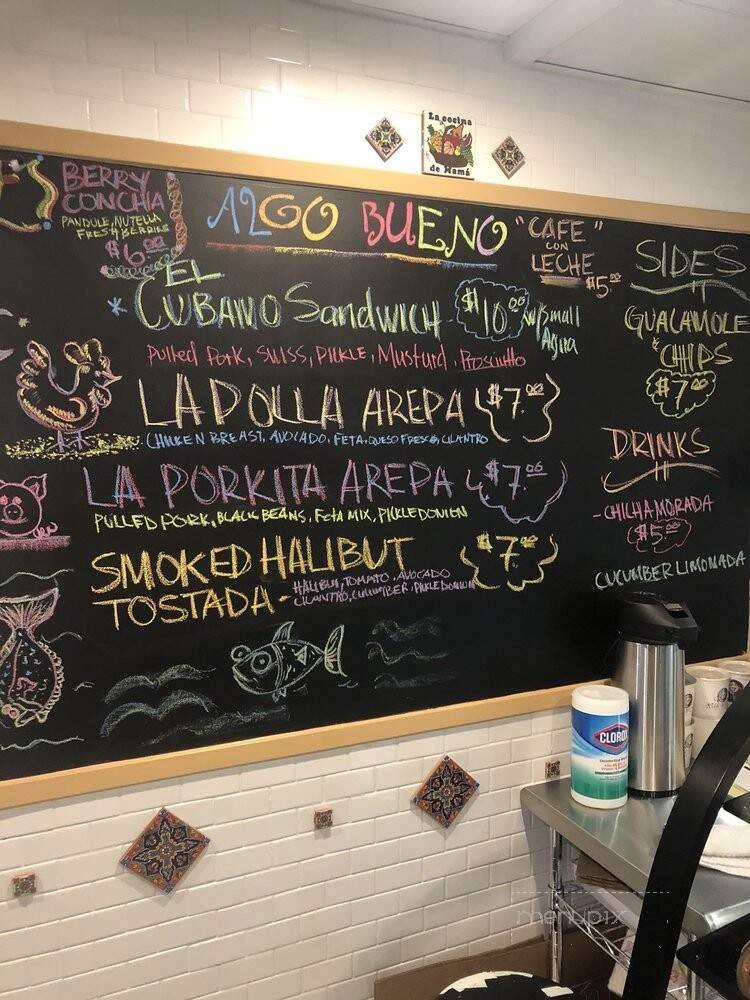 La cocina
de Mamá
BERRY
CONCHA
PANDULE, NUTELLA
FRESH BERRIES
$6.00
ALGO BUENO
"CAFE"
CON
LECHE
$5.00
EL
* CUBANO SANDWICH $10.00 w/small
Agua
Pulled Pork, SWISS, PICKLE, Mustard, Prosciutto
LA POLLA AREPA $7.00
CHICKEN BREAST, AVOCADO, FETA, QUESO FRESCO, CILANTRO
LA PORKITA AREPA $7.00
PULLED PORK, BLACK BEANS, FETA MIX, PICKLED ONION
SMOKED HALIBUT $7.00
TOSTADA - HALIBUT, TOMATO, AVOCADO
CILANTRO, CUCUMBER, PICKLED ONION
SIDES
GUACAMOLE
& CHIPS
$7.00
DRINKS
- CHICHA MORADA
$5.00
CUCUMBER LIMONADA
CLOROX
menupix